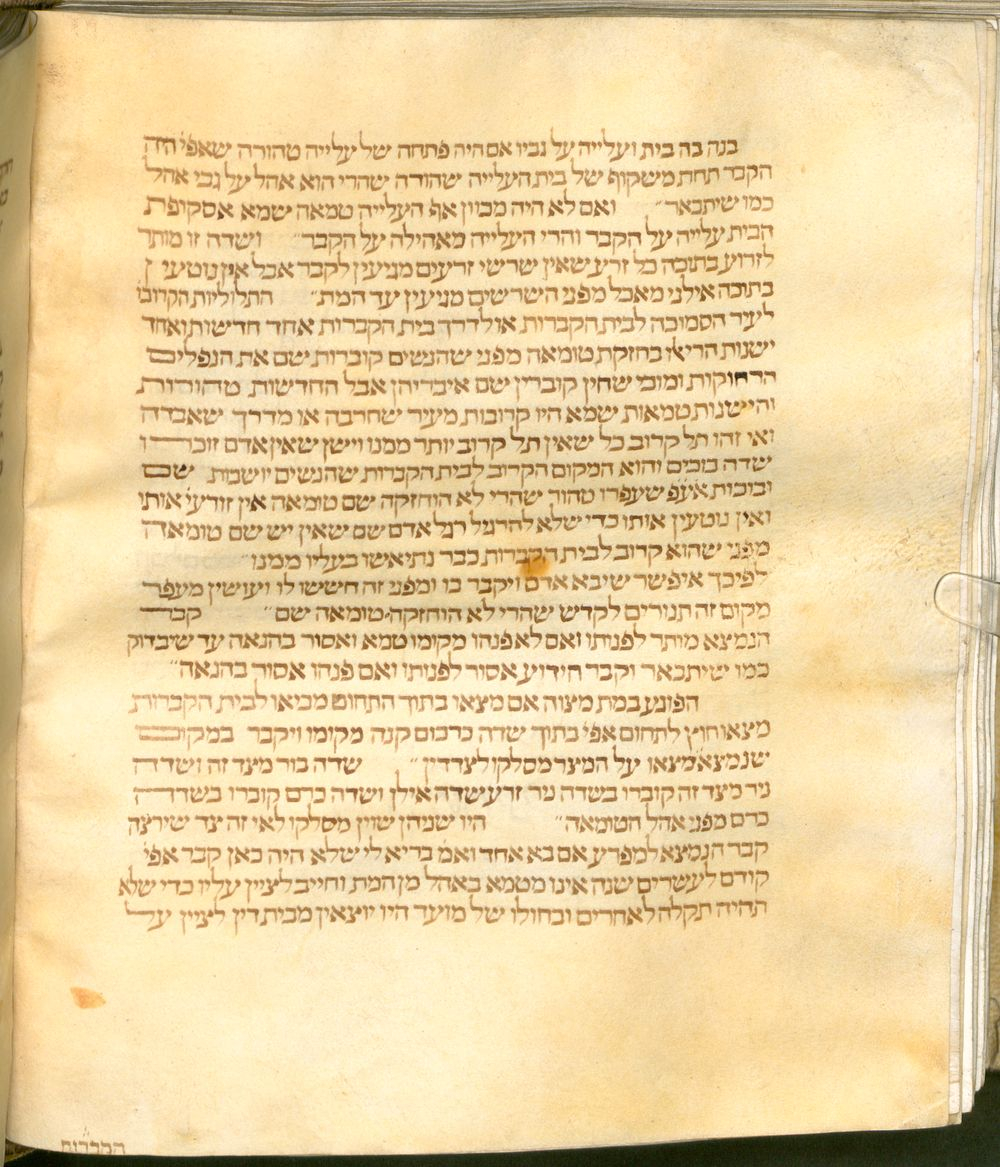 בנה בה בית ועלייה על גביו אם היה פתחה של עלייה טהורה שאפי' היה
הקבר תחת משקוף של בית העלייה שהורה שהרי הוא אהל על גבי אהל
כמו שיתבאר״ ואם לא היה מכוין אף העלייה טמאה שמא אסקופת
הבית עלייה על הקבר והרי העלייה מאהילה על הקבר״ ושדה זו מותר
לזרוע בתוכה כל זרע שאין שרשי זרעים מגיעין לקבר אבל אין נוטעי ן
בתוכה אילני מאכל מפני השרשים מגיעין עד המת״ התלוליות הקרובו
לעיר הסמוכה לבית הקברות או לדרך בית הקברות אחד חדשות ואחד
ישנות הרי אלו בחזקת טומאה מפני שהנשים קוברות שם את הנפלים
הרחוקות ומוכי שחין קוברין שם איבריהן אבל החדשות טהורות
והישנות טמאות שמא היו קרובות מעיר שחרבה או מדרך שאבדה
ואי זהו תל קרוב כל שאין תל קרוב יותר ממנו וישן שאין אדם זוכר ו
שדה בוכים והוא המקום הקרוב לבית הקברות שהנשים יושבות שם
ובוכות אע״פ שעפרו טהור שהרי לא הוחזקה שם טומאה אין זורעי' אותו
ואין נוטעין אותו כדי שלא להרגיל רגל אדם שם שאין יש שם טומאה
מפני שהוא קרוב לבית הקברות כבר נתיאשו בעליו ממנו״
לפיכך איפשר שיבא אדם ויקבר בו ומפני זה חששו לו ועושין מעפר
מקום זה תנורים לקדש שהרי לא הוחזקה טומאה שם״ קבר
הנמצא מותר לפנותו ואם לא פנהו מקומו טמא ואסור בהנאה עד שיבדוק
כמו שיתבאר וקבר הידוע אסור לפנותו ואם פנהו אסור בהנאה״
הפוגע במת מצוה אם מצאו בתוך התחום מביאו לבית הקברות
מצאו חוץ לתחום אפי' בתוך שדה כרכום קנה מקומו ויקבר במקום
שנמצא מצאו על המצר מסלקו לצדדין״ שדה בור מצד זה ושדה
ניר מצד זה קוברו בשדה ניר זרע שדה אילן ושדה כרם קוברו בשדה
כרם מפני אהל הטומאה״ היו שניהן שוין מסלקו לאי זה צד שירצה
קבר הנמצא למפרע אם בא אחד ואמ' בריא לי שלא היה כאן קבר אפי'
קודם לעשרים שנה אינו מטמא באהל מן המת וחייב לציין עליו כדי שלא
תהיה תקלה לאחרים ובחולו של מועד היו יוצאין מבית דין לציין על